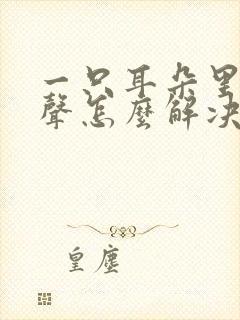 一只耳朵里
聲怎麼解决
皇塵